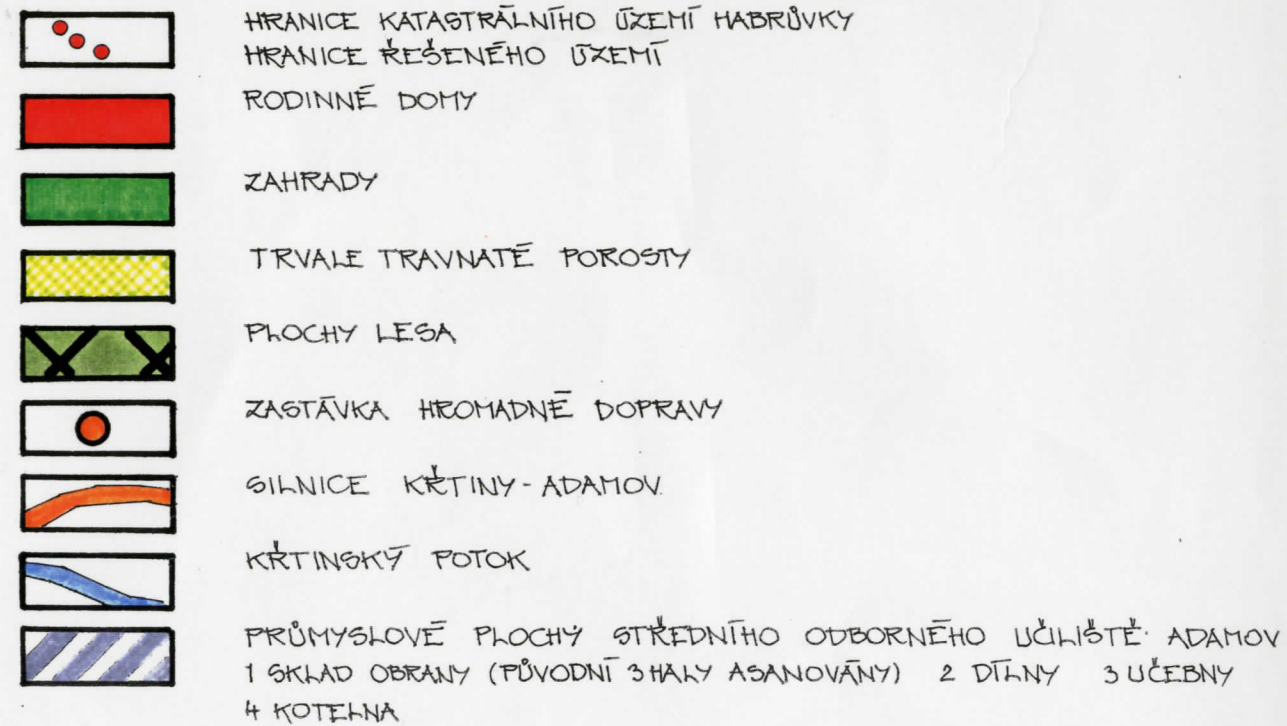 HRANICE KATASTRÁLNÍHO ÚZEMÍ HABRŮVKY
HRANICE ŘEŠENÉHO ÚZEMÍ
RODINNÉ DOMY
ZAHRADY
TRVALE TRAVNATÉ POROSTY
PLOCHY LESA
ZASTÁVKA HROMADNÉ DOPRAVY
SILNICE KŘTINY-ADAMOV
KŘTINSKÝ POTOK
PRŮMYSLOVÉ PLOCHY STŘEDNÍHO ODBORNÉHO UČILIŠTĚ ADAMOV
1 SKLAD OBRANY (PŮVODNÍ 3 HALY ASANOVÁNY) 2 DÍLNY 3 UČEBNY
4 KOTELNA